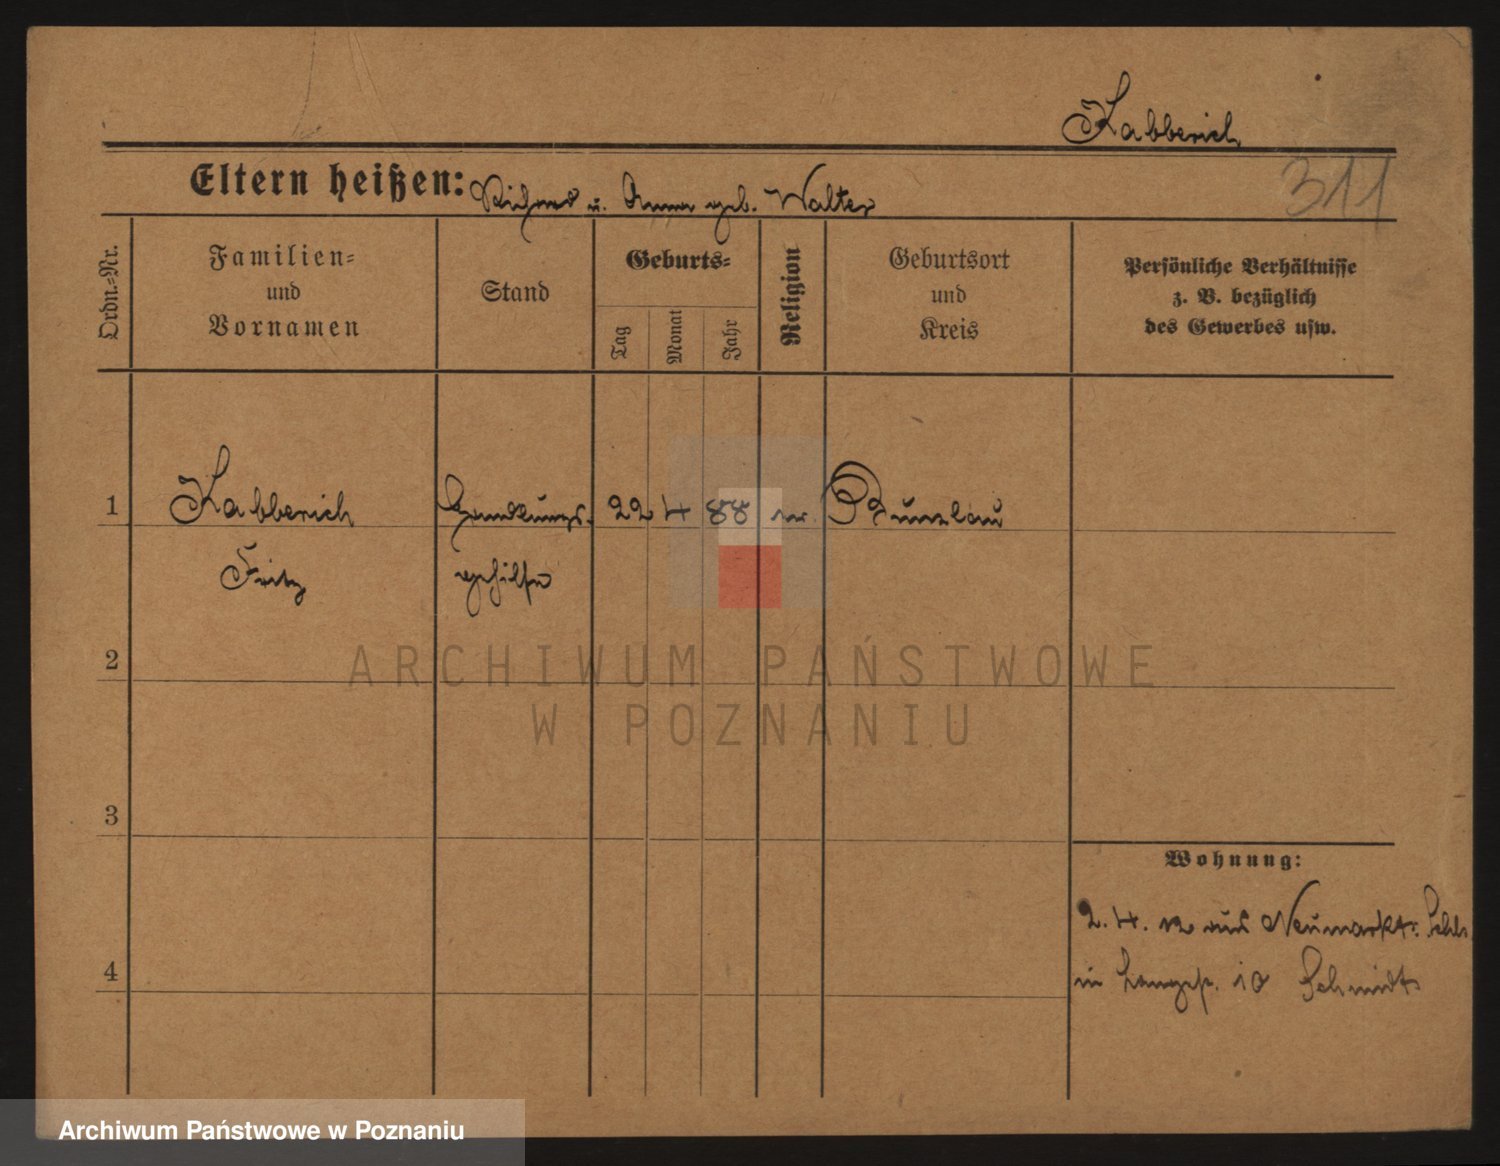 Kabberich
Eltern heißen: Richard u. Anna geb. Walter
311
Ordn.-Nr.
Familien-
und
Vornamen
Stand
Geburts-
Tag
Monat
Jahr
Religion
Geburtsort
und
Kreis
Persönliche Verhältnisse
z. B. bezüglich
des Gewerbes usw.
1
Kabberich
Handlungs-
22
4
88
Bunzlau
Fritz
gehilfe
2
ARCHIWUM PAŃSTWOWE
W POZNANIU
3
Wohnung:
2. 4. 12 aus Neumarkt Schls.
4
in 10 Schmidt
Archiwum Państwowe w Poznaniu